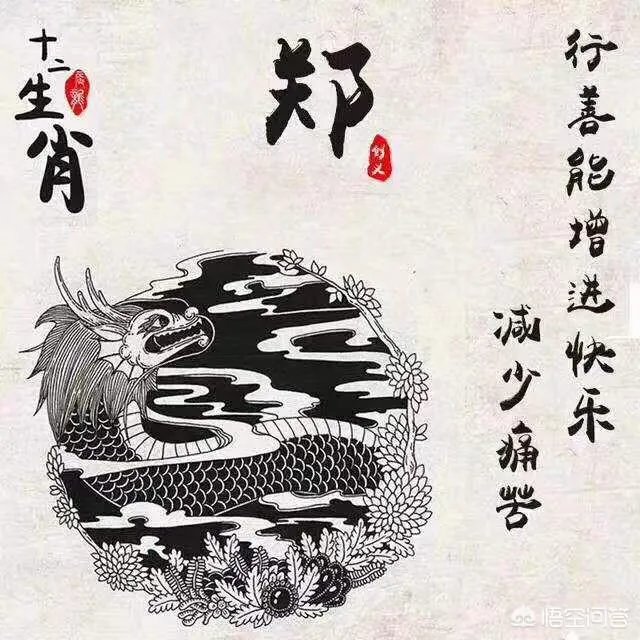 十二生肖
郑
创义
行善能增进快乐
减少痛苦
悟空问答